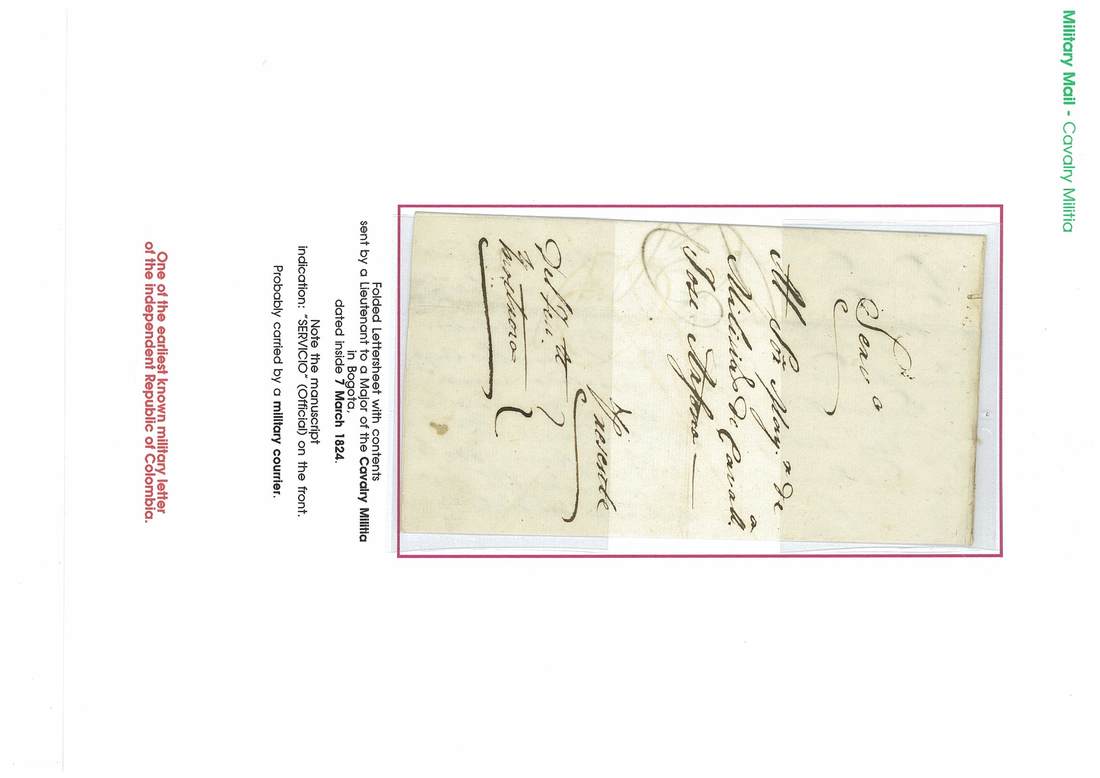 Military Mail - Cavalry Militia
Al Sör May.r de
Milicias de Cavall.a
Jose
Del
Folded Lettersheet with contents
sent by a Lieutenant to a Major of the Cavalry Militia
in Bogota,
dated inside 7 March 1824.
Note the manuscript
indication: "SERVICIO" (Official) on the front.
Probably carried by a military courrier.
One of the earliest known military letter
of the independent Republic of Colombia.